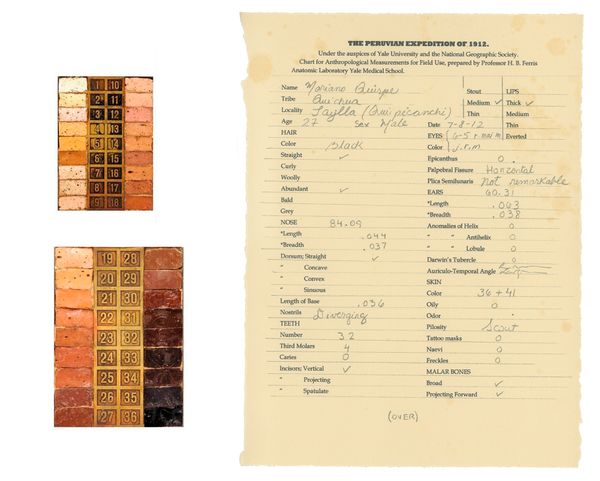 1 10
2 11
3 12
4 13
5 14
6 15
7 16
8 17
9 18
19 28
20 29
21 30
22 31
23 32
24 33
25 34
26 35
27 36
THE PERUVIAN EXPEDITION OF 1912.
Under the auspices of Yale University and the National Geographic Society.
Chart for Anthropological Measurements for Field Use, prepared by Professor H. B. Ferris
Anatomic Laboratory Yale Medical School.
Name Mariano Quispe
Tribe Quichua
Locality (Quipicanchi)
Age 27 Sex Male
HAIR
Color Black
Straight ✓
Curly
Woolly
Abundant ✓
Bald
Grey
NOSE 84.09
*Length .044
*Breadth .037
Dorsum; Straight ✓
" Concave
" Convex
" Sinuous
Length of Base .036
Nostrils Diverging
TEETH
Number 32
Third Molars 4
Caries 0
Incisors; Vertical ✓
" Projecting
" Spatulate
Stout LIPS
Medium ✓ Thick ✓
Thin Medium
Date 7-8-12 Thin
EYES Everted
Color
Epicanthus 0
Palpebral Fissure Horizontal
Plica Semilunaris not remarkable
EARS 60.31
*Length .063
*Breadth .038
Anomalies of Helix 0
" " Antihelix 0
" " Lobule 0
Darwin's Tubercle 0
Auriculo-Temporal Angle
SKIN
Color 36 + 41
Oily 0
Odor
Pilosity
Tattoo masks 0
Naevi 0
Freckles 0
MALAR BONES
Broad ✓
Projecting Forward ✓
(OVER)